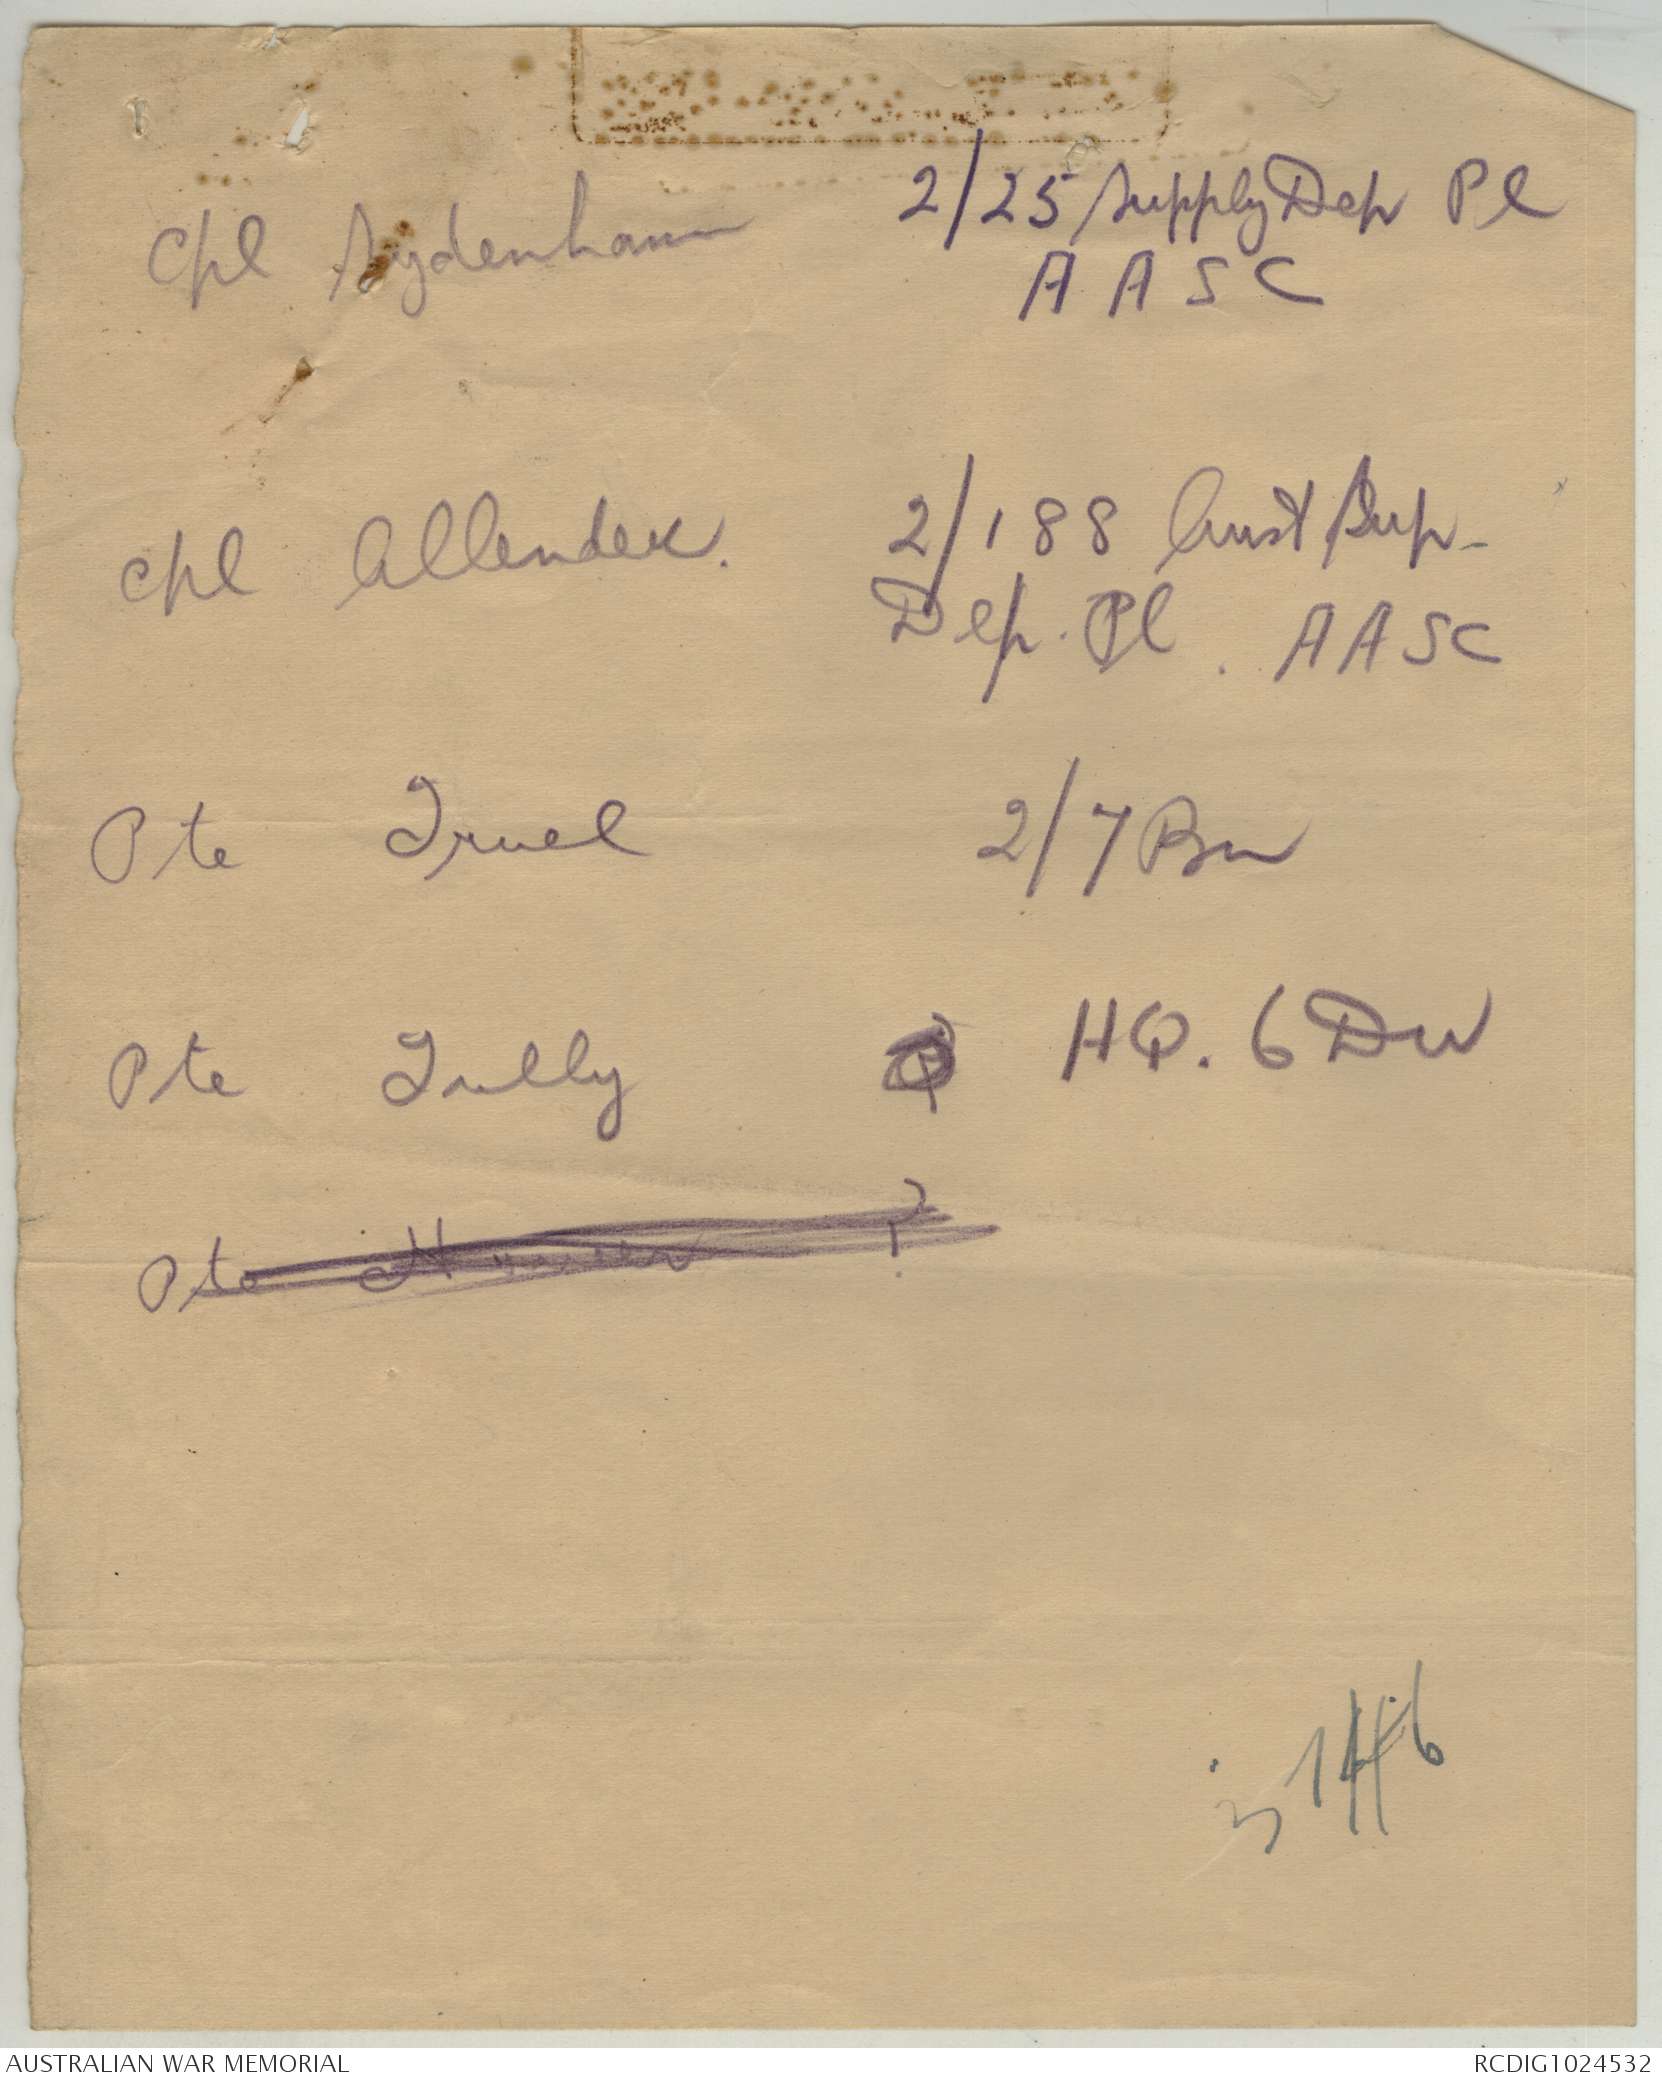 Cpl Sydenham 2/25 Supply Dep Pl
A A S C
Cpl Allender. 2/188 Aust Sup-
Dep. Pl. AASC
Pte Truel 2/7 Bn
Pte Tully HQ. 6 Div
Pte ?
AUSTRALIAN WAR MEMORIAL
RCDIG1024532